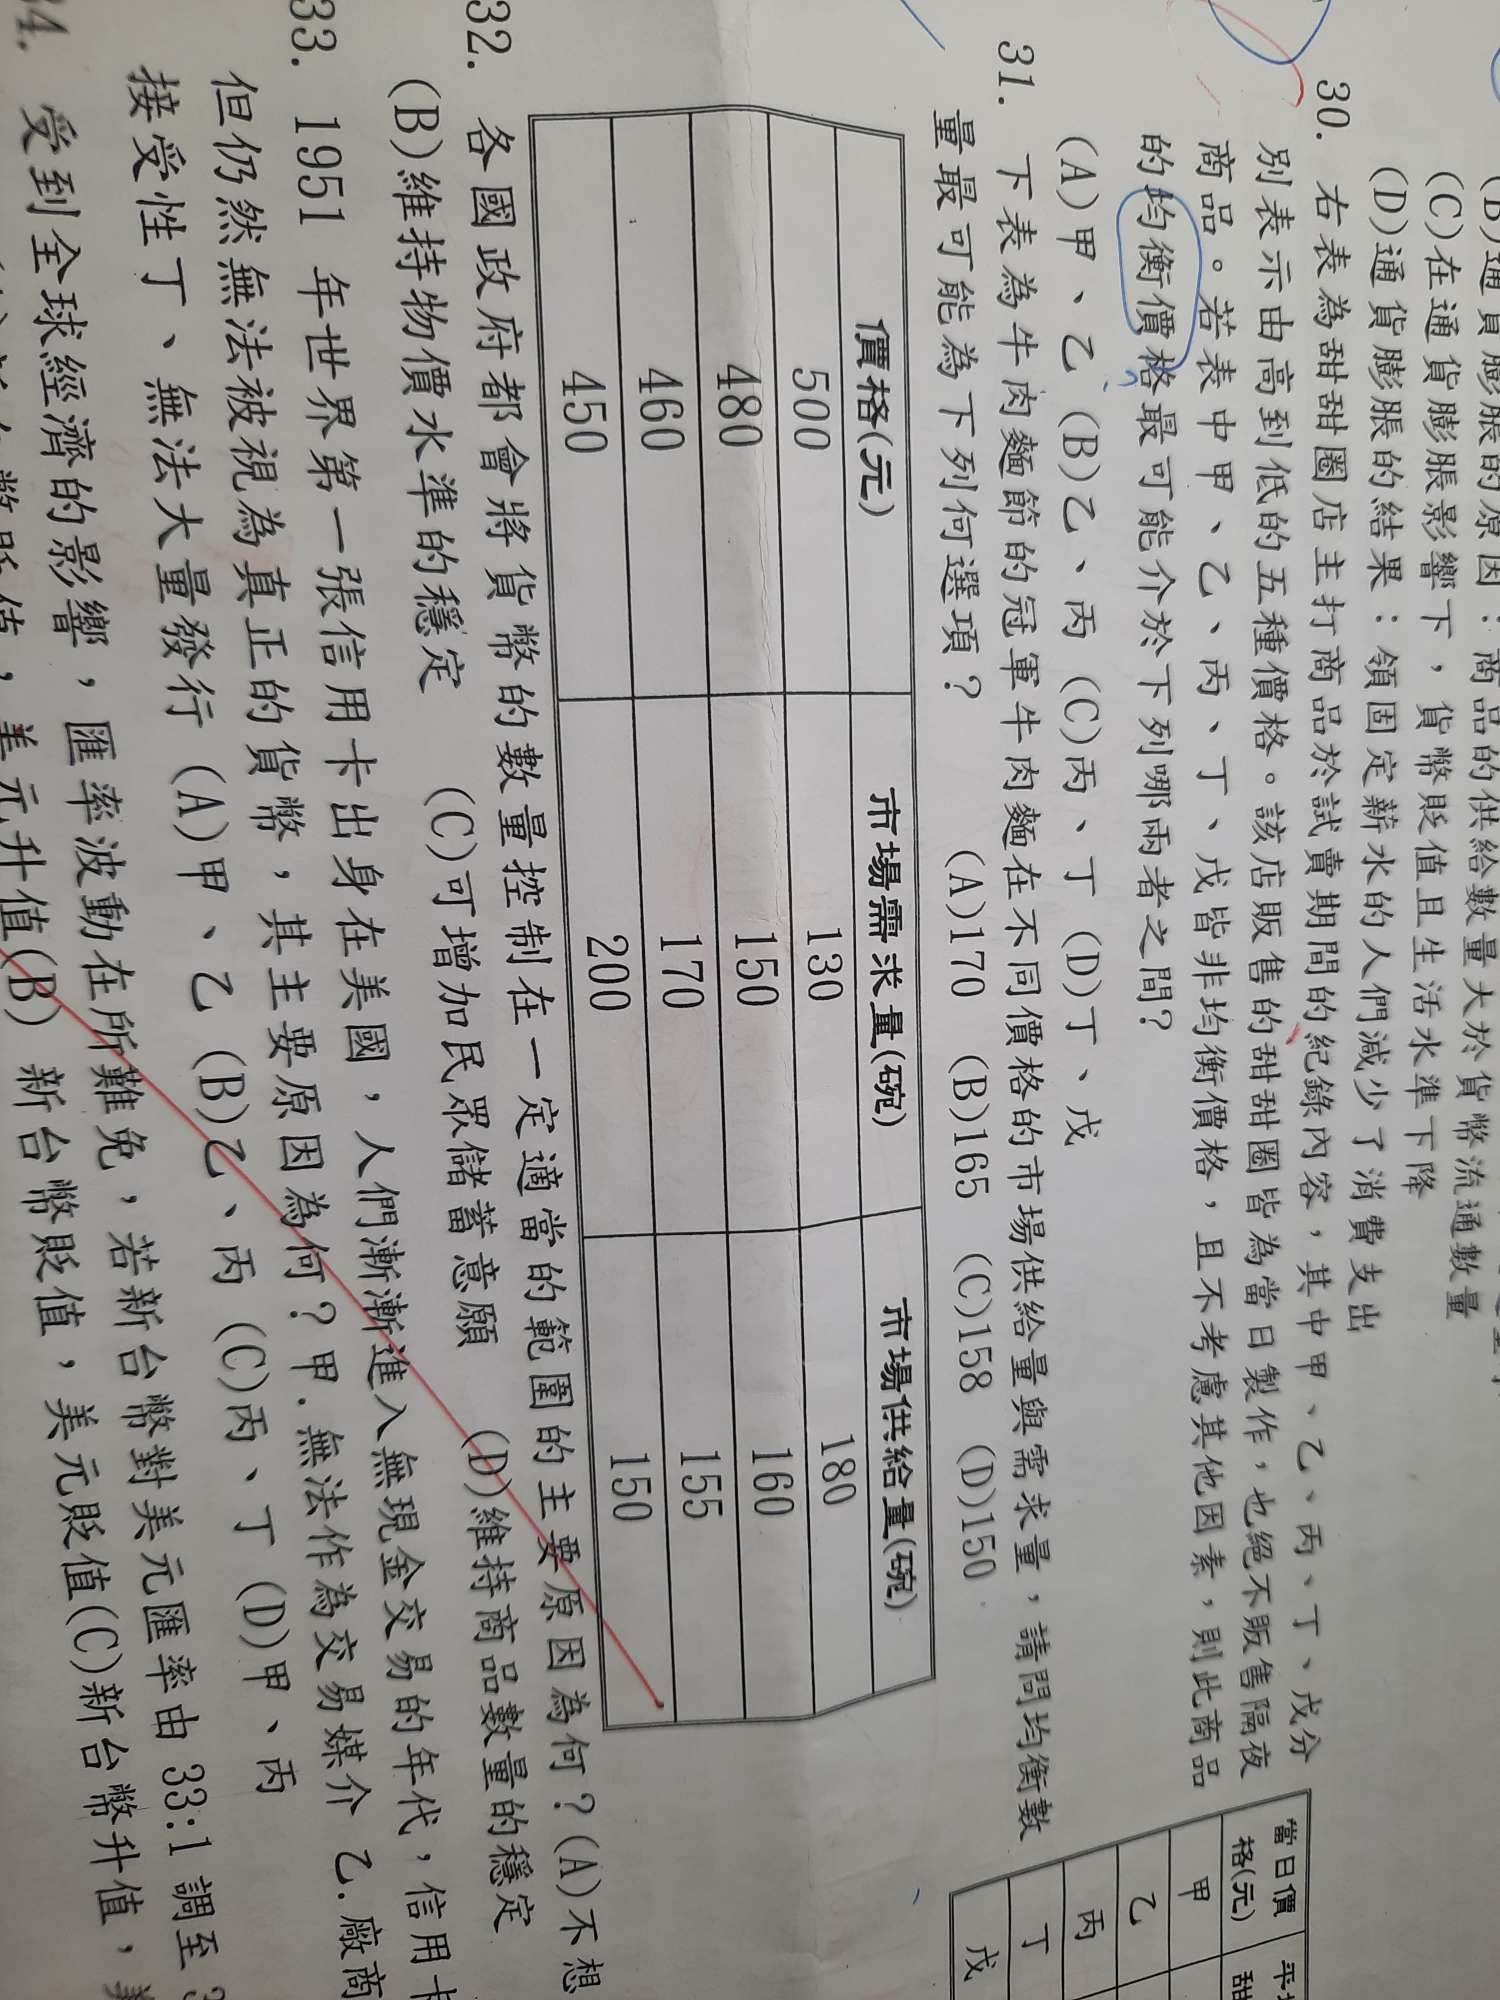 (B)通貨膨脹的原因：商品的供給數量大於貨幣流通數量
(C)在通貨膨脹影響下，貨幣貶值且生活水準下降
(D)通貨膨脹的結果：領固定薪水的人們減少了消費支出
30. 右表為甜甜圈店主打商品於試賣期間的紀錄內容，其中甲、乙、丙、丁、戊分
別表示由高到低的五種價格。該店販售的甜甜圈皆為當日製作，也絕不販售隔夜
商品。若表中甲、乙、丙、丁、戊皆非均衡價格，且不考慮其他因素，則此商品
的均衡價格最可能介於下列哪兩者之間？
(A)甲、乙 (B)乙、丙 (C)丙、丁 (D)丁、戊
當日價
格(元)
甜
甲
乙
丙
丁
戊
31. 下表為牛肉麵節的冠軍牛肉麵在不同價格的市場供給量與需求量，請問均衡數
量最可能為下列何選項？ (A)170 (B)165 (C)158 (D)150
價格(元) 市場需求量(碗) 市場供給量(碗)
500 130 180
480 150 160
460 170 155
450 200 150
32. 各國政府都會將貨幣的數量控制在一定適當的範圍的主要原因為何？(A)不想
(B)維持物價水準的穩定 (C)可增加民眾儲蓄意願 (D)維持商品數量的穩定
33. 1951 年世界第一張信用卡出身在美國，人們漸漸進入無現金交易的年代，信用卡
但仍然無法被視為真正的貨幣，其主要原因為何？甲.無法作為交易媒介 乙.廠商
接受性丁、無法大量發行 (A)甲、乙 (B)乙、丙 (C)丙、丁 (D)甲、丙
34. 受到全球經濟的影響，匯率波動在所難免，若新台幣對美元匯率由 33:1 調至
美元升值(B) 新台幣貶值，美元貶值(C)新台幣升值，